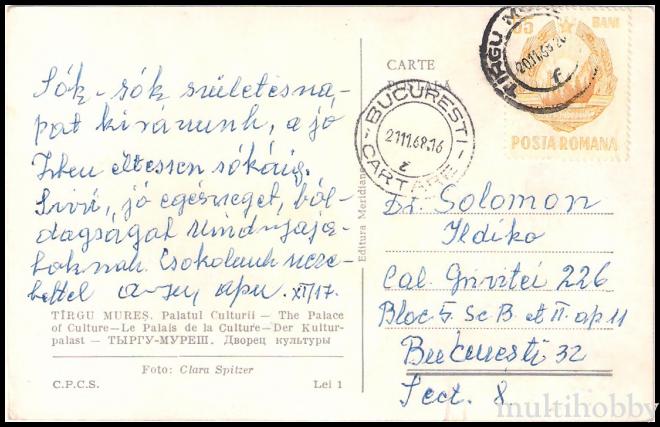 Sok-sok születésna-
pot kivánunk, a jó
Isten éltessen sokáig.
jó egészséget, bol-
dogságot mindnyája-
toknak. Csókolunk szere-
tettel apu. XI/17.
TÎRGU MUREȘ. Palatul Culturii — The Palace
of Culture—Le Palais de la Culture—Der Kultur-
palast — ТЫРГУ-МУРЕШ. Дворец культуры
Foto: Clara Spitzer
C.P.C.S. Lei 1
Editura Meridiane
CARTE
POȘTALĂ
BUCUREȘTI
2111.68.16
CARTARE
TÎRGU MUREȘ
20.11.68
55 BANI
POSTA ROMANA
Dr. Solomon
Ildiko
Cal. Griviței 226
Bloc 5. Sc B et II. ap 11
București 32
Sect. 8
multihobby